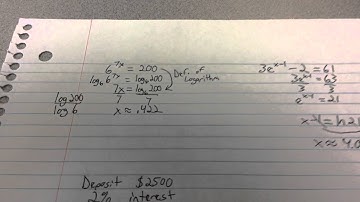 6^7x = 200
log₆6^7x = log₆200
Def. of
Logarithm
7x = log₆200
7 7
log 200
log 6
x ≈ .422
3e^x-1 - 2 = 61
3e^x-1 = 63
3 3
e^x-1 = 21
x-1 = ln 21
x ≈ 4.0
Deposit $2500
2% interest